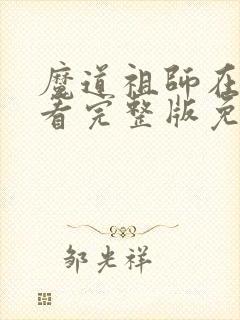 魔道祖师在
看完整版免
邹光祥